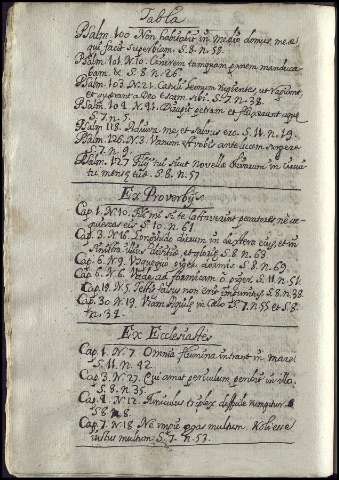 Tabla
Psalm. 100 Non habitabit in medio domus meæ
qui facit Superbiam. S. 8. n. 58.
Psalm. 101. N. 10. Cinerem tamquam panem manduca
bam. &. S. 8. n. 26.
Psalm. 103. N. 21. Catuli Leonum rugientes, ut rapiant,
et quærant a Deo escam sibi. S. 7. n. 38.
Psalm. 104. N. 41. petram et fluxerunt aquæ
S. 7. n. 5.
Psalm. 118. Adiuva me, et Salvus ero. S. 11. n. 19.
Psalm. 126. N. 3. Vanum est vobis ante lucem surgere
S. 7. n. 9.
Psalm. 127 Filij tui sicut Novellæ olivarum in circui
tu mensæ tuæ. S. 8. n. 57
Ex Proverbijs
Cap. 1. N. 10. Fili mi si te lactaverint peccatores ne ac
quiescas eis S. 10. n. 61
Cap. 3. N. 16. Longitudo dierum in dextera eius, et in
Sinistra illius divitiæ, et gloria S. 8. n. 63
Cap. 6. N. 9. Usquequo piger dormis S. 8. n. 69.
Cap. 6. N. 6. Vade ad formicam o piger S. 11. n. 51.
Cap. 19. N. 5. Testis falsus non erit impunitus S. 8. n. 98.
Cap. 30. N. 19. Viam Aquilæ in Cælo S. 7. n. 55 et S. 8.
n. 31.
Ex Ecclesiastes
Cap. 1. N. 7. Omnia flumina intrant in mare
S. 11. n. 42.
Cap. 3. N. 27. Qui amat periculum peribit in illo.
S. 8. n. 35.
Cap. 4. N. 12. Funiculus triplex difficile rumpitur.
S. 8. n. 8.
Cap. 7. N. 18. Ne impie agas multum. Noli esse
iustus multum S. 7. n. 53.